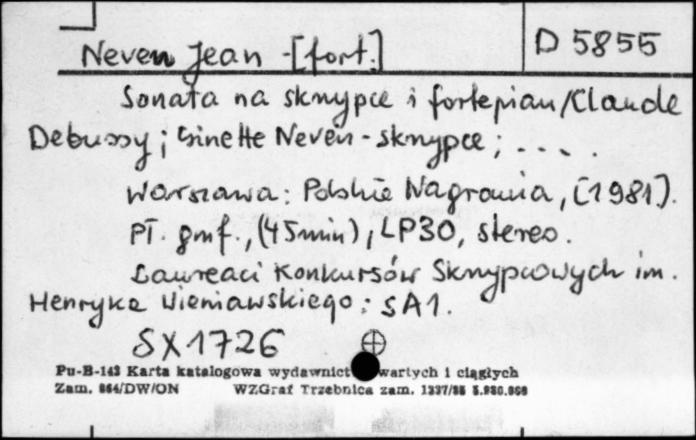 Neven Jean -[fort.]
D 5855
Sonata na skrzypce i fortepian/Claude
Debussy; Ginette Neven - skrzypce; ... .
Warszawa: Polskie Nagrania, [1981].
Pł. gmf., (45min), LP30, stereo.
Laureaci Konkursów Skrzypcowych im.
Henryka Wieniawskiego: SA1.
SX1726
Pu-B-143 Karta katalogowa wydawnict wartych i ciągłych
Zam. 864/DW/ON WZGraf Trzebnica zam. 1337/85 5.980.000